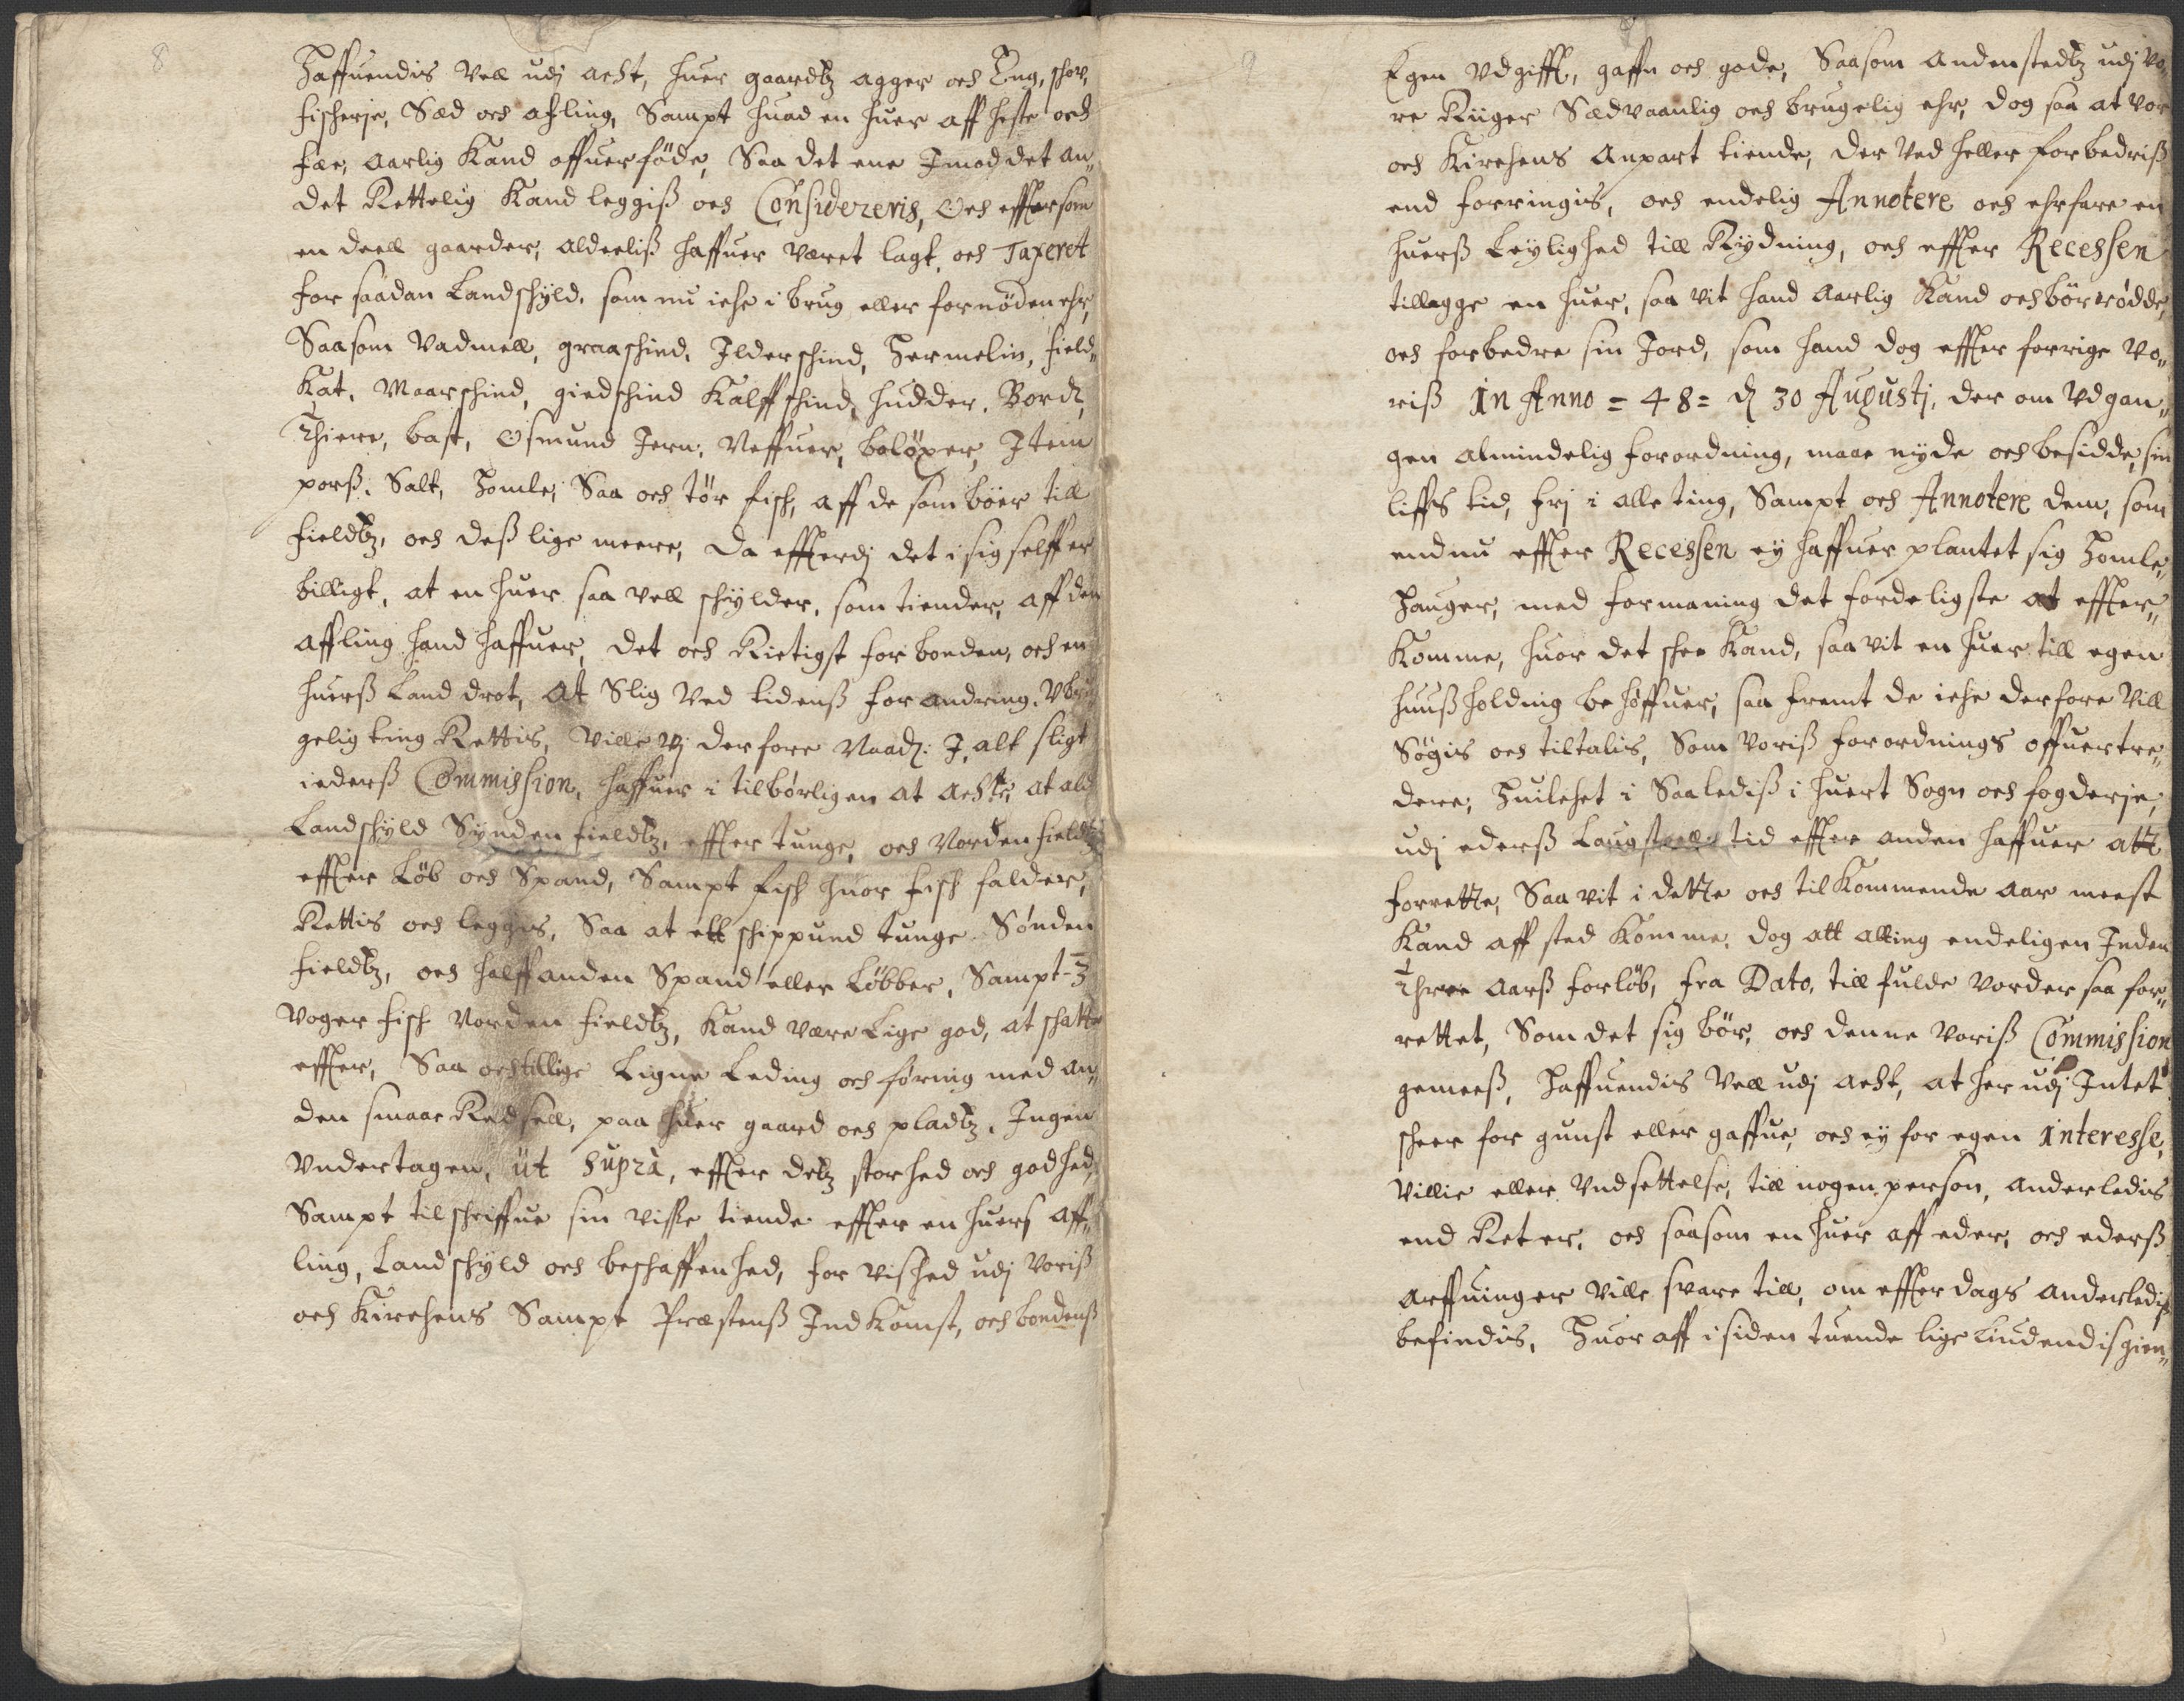 8
Haffuendis Vell udj acht, huer gaardtz agger och Eng, schov,
fischerje, Sæd och afling, Sampt huad en huer aff heste och
fæe, aarlig Kand offuerføde, Saa det ene Imod det an„
det Rettelig Kand leggiß och Considereris, Och effter som
en deell gaarder, alderliß haffuer været lagt, och Taxeret
for saadan Landschyld, som nu iche i brug eller fornøden ehr,
Saasom Vadmell, graaschind, Ilderschind, Hermelin, field„
Kat, Maarschind, giedschind Kalffschind, hudder, Bordt,
Thiere, bast, Osmund Jern, Neffuer, bolöxer, Item
porß, Salt, Homle, Saa och tör fisch, aff de som böer till
fieldtz, och deßlige meere, da effterdj det i sig selff er
billigt, at en huer saa vell schylder, som tiender, aff den
affling hand haffuer, det och Rictigst for bonden, och en
huerß Land drot, at Slig Ved tidenß forandring, Vbru
gelig ting Rettis, Ville vj derfore Naadt: I, alt sligt
iederß Commission, haffuer i tilbørligen at achte, at ald
Landschyld Synden fieldtz, effter tunge, och Norden fieldtz
effter Löb och Spand, Sampt fisch huor fisch falder,
Rettis och leggis, Saa at ett schippund tunge Sønden
fieldtz, och halffanden Spand eller Löbber, Sampt 3
Voger fisch Norden fieldtz, Kand være Lige god, at schatte
effter, Saa och tillige Ligne Leding och föring med an„
den smaar Redsell, paa huer gaard och pladtz, Ingen
Vndertagen, üt supra, effter detz storhed och godhed,
Sampt tilschriffue sin visse tiende effter en huers aff„
ling, Landschyld och beschaffenhed, for vished udj Voriß
och Kirchens Sampt Præstenß Indkomst, och bondenß
9
Egen Vdgifft, gaffn och gode, Saasom andenstedtz udj Vo„
re Riiger Sædvaanlig och brugelig ehr, dog saa at Vor
och Kirchens anpart tiende, der Ved heller forbedriß
end forringis, och endelig Annotere och ehrfare en
huerß Leylighed till Rydning, och effter Recessen
tillegge en huer, saa vit hand aarlig Kand och bör rödde,
och forbedre sin Jord, som hand dog effter forrige Vo„
riß In Anno = 48 = d 30 Augustj, der om Vdgan„
gen almindelig forordning, maae nyde och besidde, sin
liffs tid, frj i alle ting, Sampt och Annotere dem, som
endnu effter Recessen ey haffuer plantet sig Homle„
Hauger, med formaning det forderligste at effter„
Komme, huor det schee Kand, saa vit en huer till egen
huußholdnig behöffuer, saa fremt de iche derfore Vill
Søgis och tiltalis, Som Voriß forordnings offuertre„
dere, Huilchet i Saalediß i huert Sogn och fogderje,
udj ederß tid effter anden haffuer att
forrette, Saa vit i dette och tilkommende aar meest
Kand aff sted Komme, dog att alting endeligen Inden
Thrre aarß forløb, fra Dato, till fulde Vorder saa for„
rettet, Som det sig bör, och denne Voriß Commission
gemeeß, Haffuendis Vell udj acht, at her udj Intet
scheer for gunst eller gaffue, och ey for egen Interesse,
Villie eller Vndsettelse, till nogen person, anderledis
end Ret er, och saasom en huer aff eder, och ederß
arffuinger Ville svare till, om effter dags anderlediß
befindis, Huor aff i siden tuende lige liudendis gien„